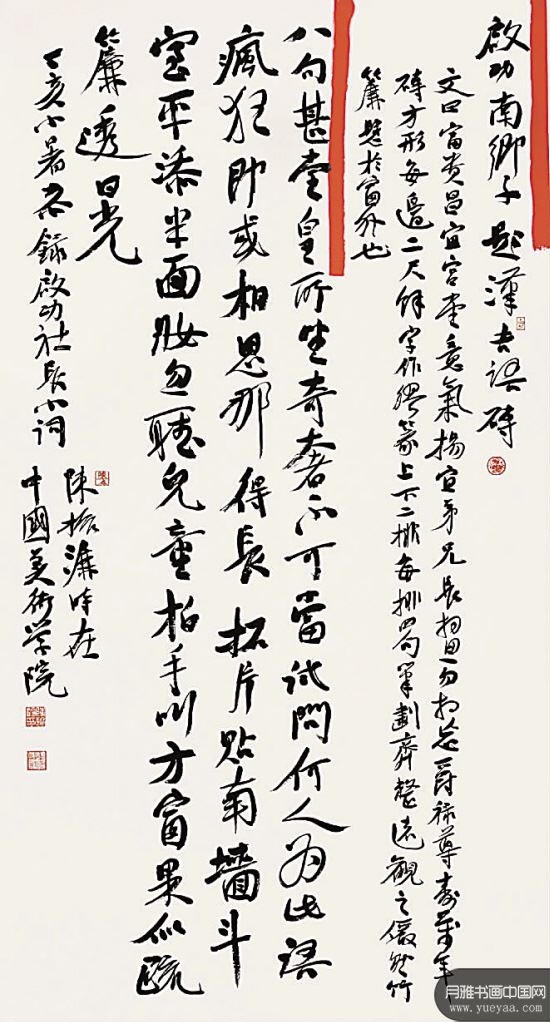 啟功南鄉子題漢吉語磚
文曰富貴昌宜宮堂意氣揚宜弟兄長相勿相忘爵祿尊壽萬年
磚方形每邊二尺餘字作繆篆上下二排每排四句筆劃齊整遠觀之儼然竹
簾懸於窗外也
八句甚堂皇所望奇奢不可當試問何人為此語
瘋狂即或相思那得長拓片貼南墻斗
室平添半面妝勿聽兒童拍手叫方窗果似疏
簾透日光
丁亥小暑恭錄啟功社長小詞
陳振濂時在
中國美術學院
月雅书画中国网
www.yueyaa.com